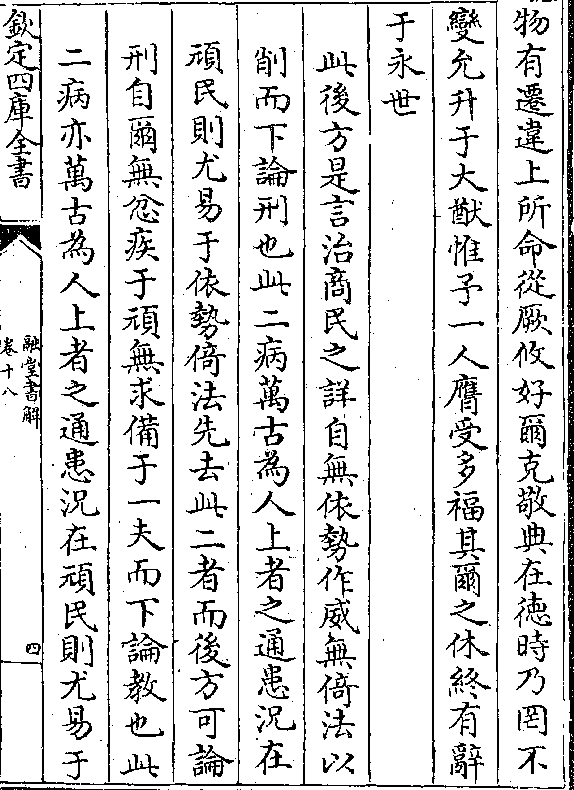 物有遷違上所命從厥攸好爾克敬典在徳時乃罔不
變允升于大猷惟予一人膺受多福其爾之休終有辭
于永世
此後方是言治商民之詳自無依勢作威無倚法以
削而下論刑也此二病萬古為人上者之通患況在
頑民則尤易于依勢倚法先去此二者而後方可論
刑自爾無忿疾于頑無求備于一夫而下論教也此
二病亦萬古為人上者之通患況在頑民則尤易于
欽定四庫全書
融堂書解
卷十八
四